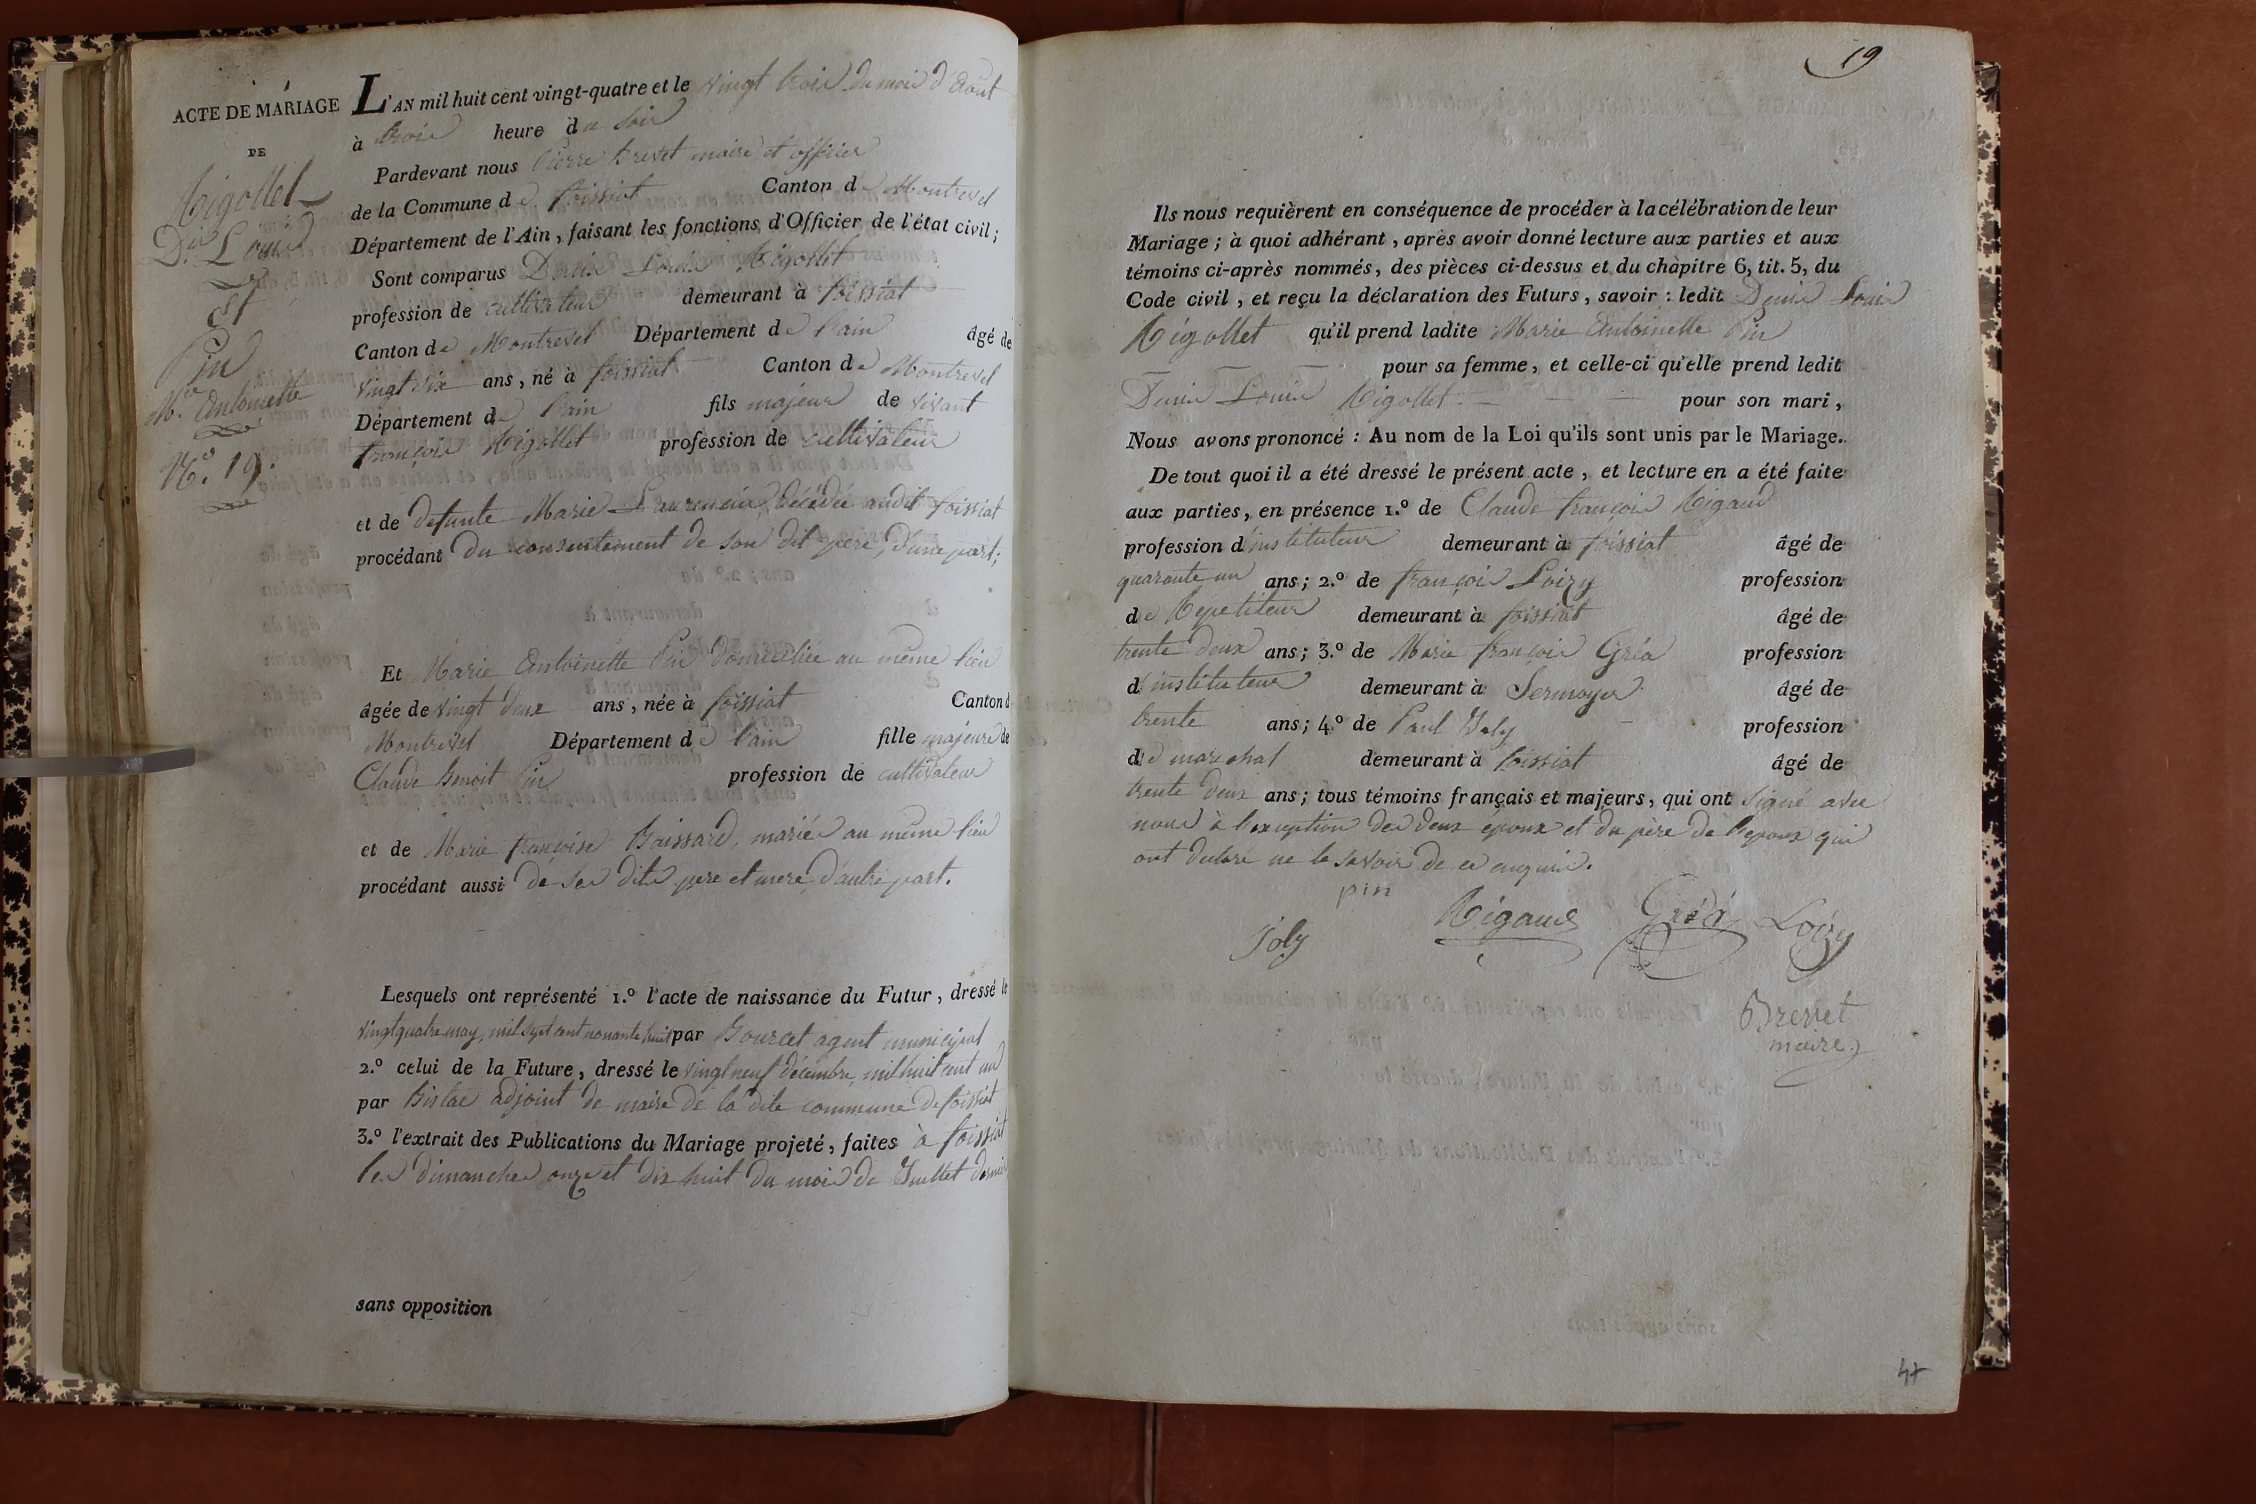 ACTE DE MARIAGE
DE
Rigollet
Dis Louis
et
Pin
Mie Antoinette
No. 19.
L'AN mil huit cent vingt-quatre et le vingt trois du mois d'Août
à trois heure du soir
Pardevant nous Pierre Brevet maire et officier
de la Commune de foissiat Canton de Montrevel
Département de l'Ain, faisant les fonctions d'Officier de l'état civil;
Sont comparus Denis Louis Rigollet
profession de cultivateur demeurant à foissiat
Canton de Montrevel Département de l'ain âgé de
vingt six ans, né à foissiat Canton de Montrevel
Département de l'ain fils majeur de vivant
françois Rigollet profession de cultivateur
et de defunte Marie décédée audit foissiat
procédant du consentement de son dit père, d'une part;
Et Marie Antoinette Pin domiciliée au même lieu
âgée de vingt deux ans, née à foissiat Canton d
Montrevel Département de l'ain fille majeure de
Claude Benoit Pin profession de cultivateur
et de Marie françoise Boissard, mariés au même lieu
procédant aussi de ses dits pere et mere, d'autre part.
Lesquels ont représenté 1.º l'acte de naissance du Futur, dressé le
vingt quatre may, mil sept cent nonante huit par Gourcet agent municipal
2.º celui de la Future, dressé le vingt neuf décembre, mil huit cent un
par adjoint de maire de la dite commune de foissiat
3.º l'extrait des Publications du Mariage projeté, faites à foissiat
les dimanches onze et dix huit du mois de Juillet dernier
sans opposition
19
Ils nous requièrent en conséquence de procéder à la célébration de leur
Mariage; à quoi adhérant, après avoir donné lecture aux parties et aux
témoins ci-après nommés, des pièces ci-dessus et du chapitre 6, tit. 5, du
Code civil, et reçu la déclaration des Futurs, savoir: ledit Denis Louis
Rigollet qu'il prend ladite Marie Antoinette Pin
pour sa femme, et celle-ci qu'elle prend ledit
Denis Louis Rigollet pour son mari,
Nous avons prononcé: Au nom de la Loi qu'ils sont unis par le Mariage.
De tout quoi il a été dressé le présent acte, et lecture en a été faite
aux parties, en présence 1.º de Claude françois Rigaud
profession d'instituteur demeurant à foissiat âgé de
quarante un ans; 2.º de françois Loizy profession
de Repetiteur demeurant à foissiat âgé de
trente deux ans; 3.º de Marie françois Gréa profession
d'instituteur demeurant à Sermoyer âgé de
trente ans; 4.º de Paul Joly profession
de marechal demeurant à foissiat âgé de
trente deux ans; tous témoins français et majeurs, qui ont signé avec
nous à l'exception des deux époux et du père de l'époux qui
ont declaré ne le savoir de ce enquis.
pin
joly Rigaud Gréa Loizy
Brevet
maire
47